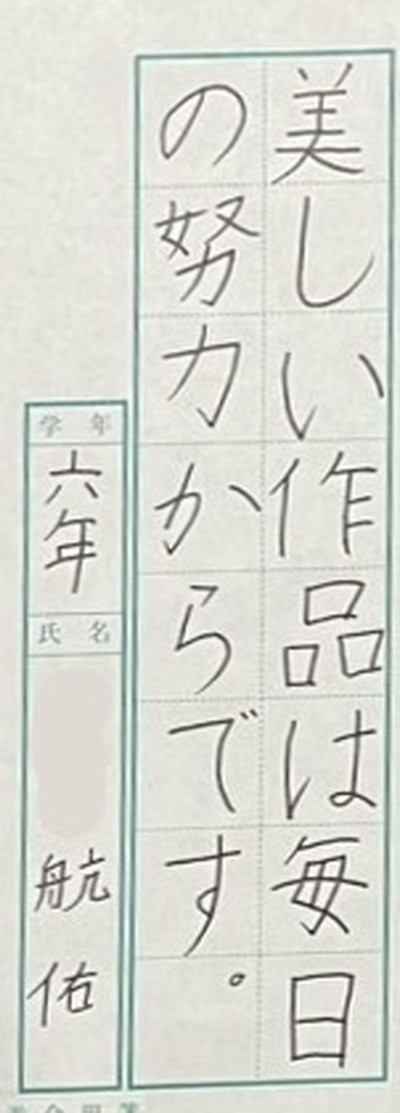 美しい作品は毎日
の努力からです。
学年
六年
氏名
航佑